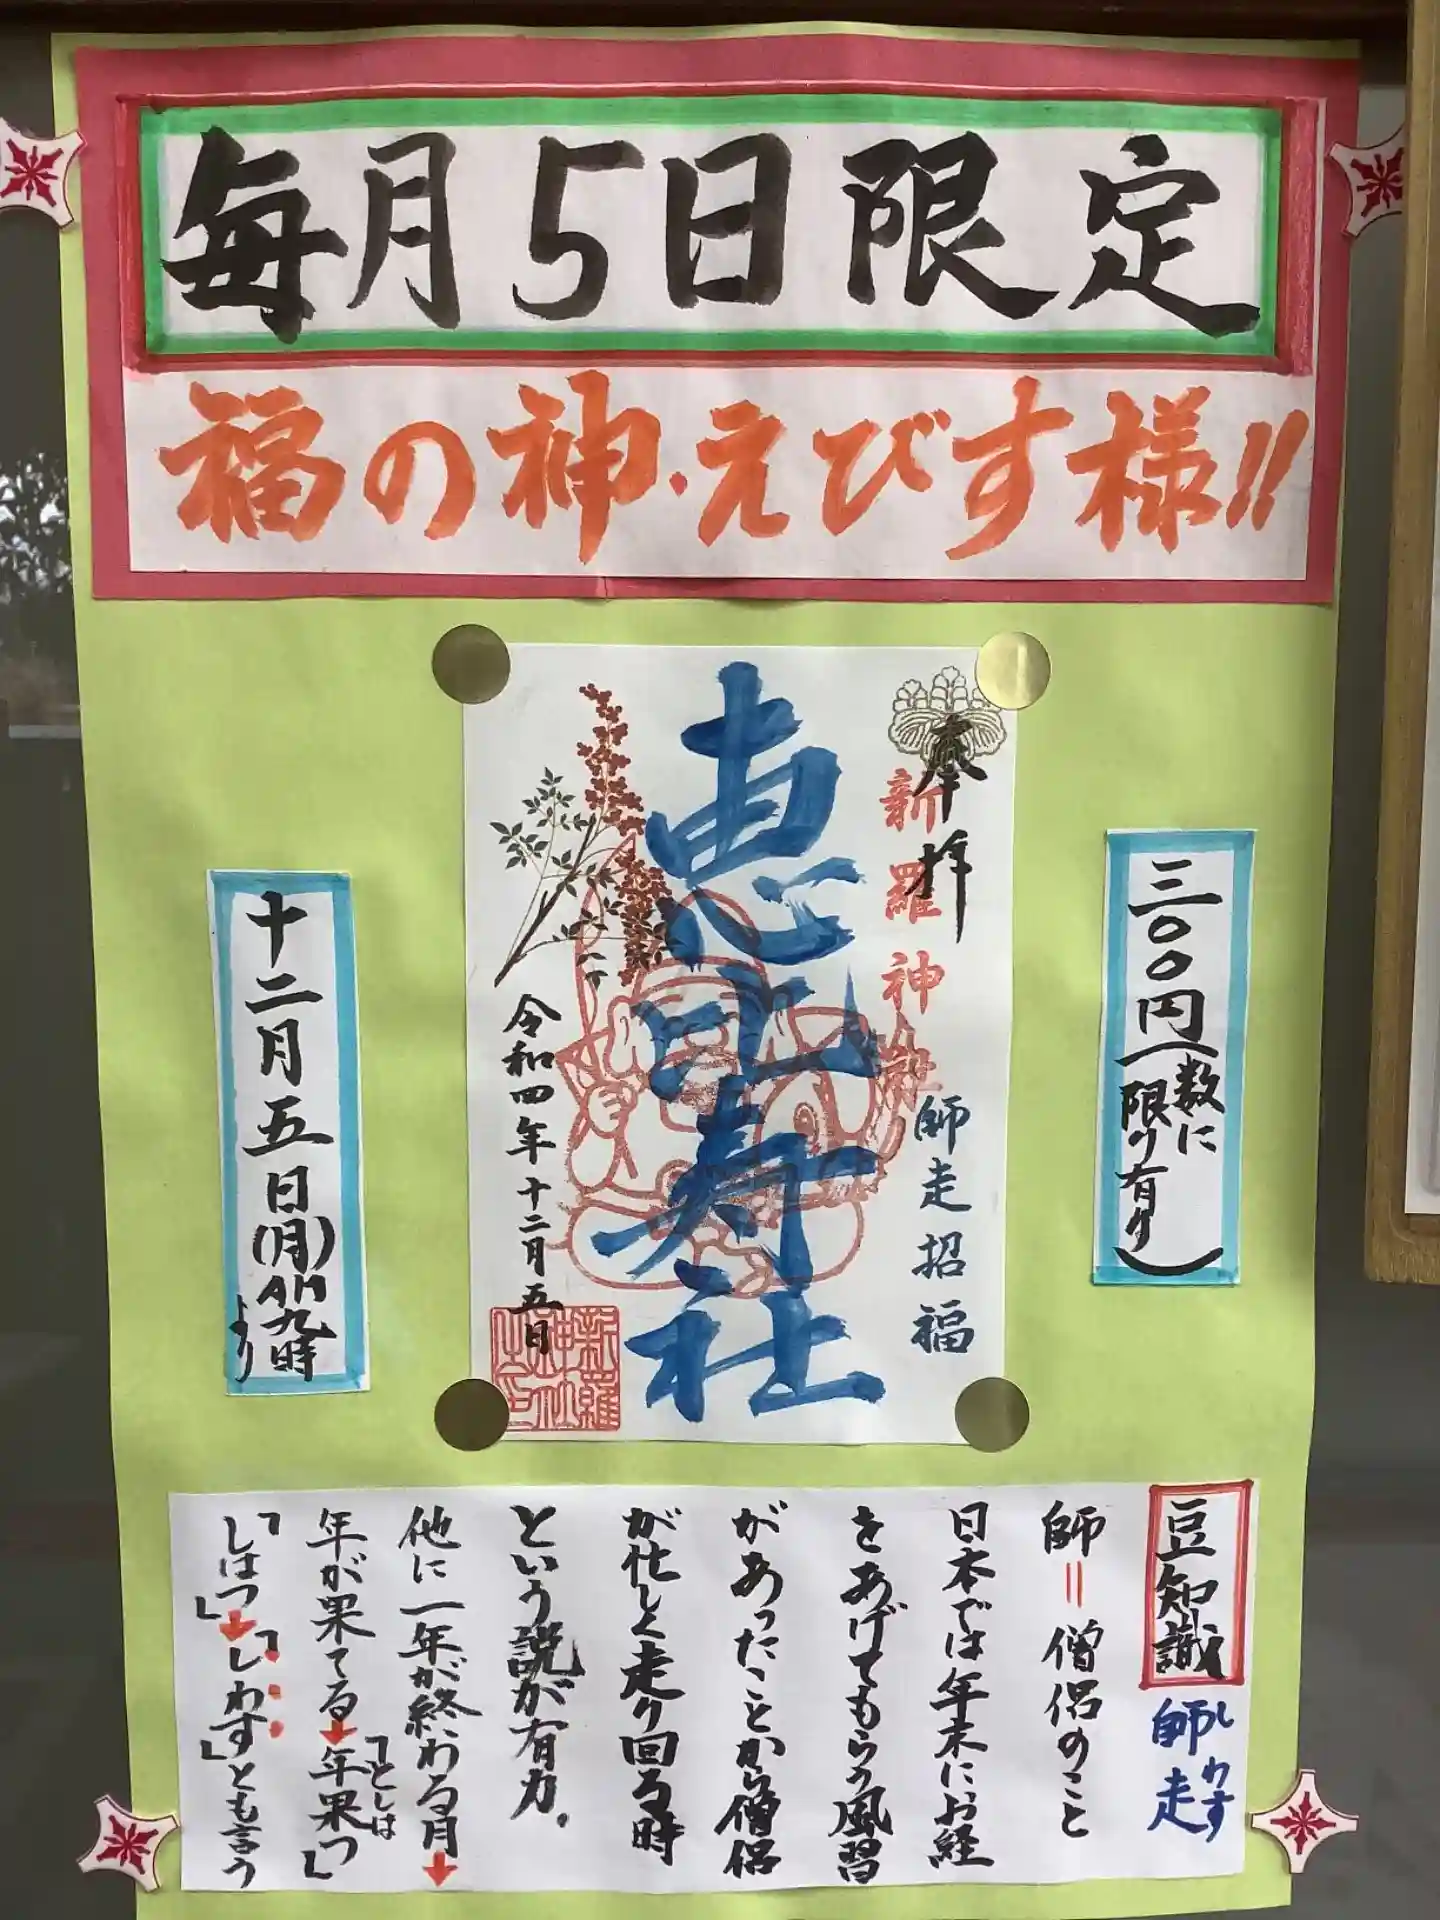 毎月5日限定
福の神・えびす様!!
三〇〇円(数に限り有り)
奉拝
新羅神社
師走招福
恵比寿社
令和四年十二月五日
十二月五日(月)AM九時より
豆知識 師走 しわす
師=僧侶のこと
日本では年末にお経
をあげてもらう風習
があったことから僧侶
が忙しく走り回る時
という説が有力。
他に一年が終わる月→
年が果てる→「年果つ」 としは
「しはつ」→「しわす」とも言う